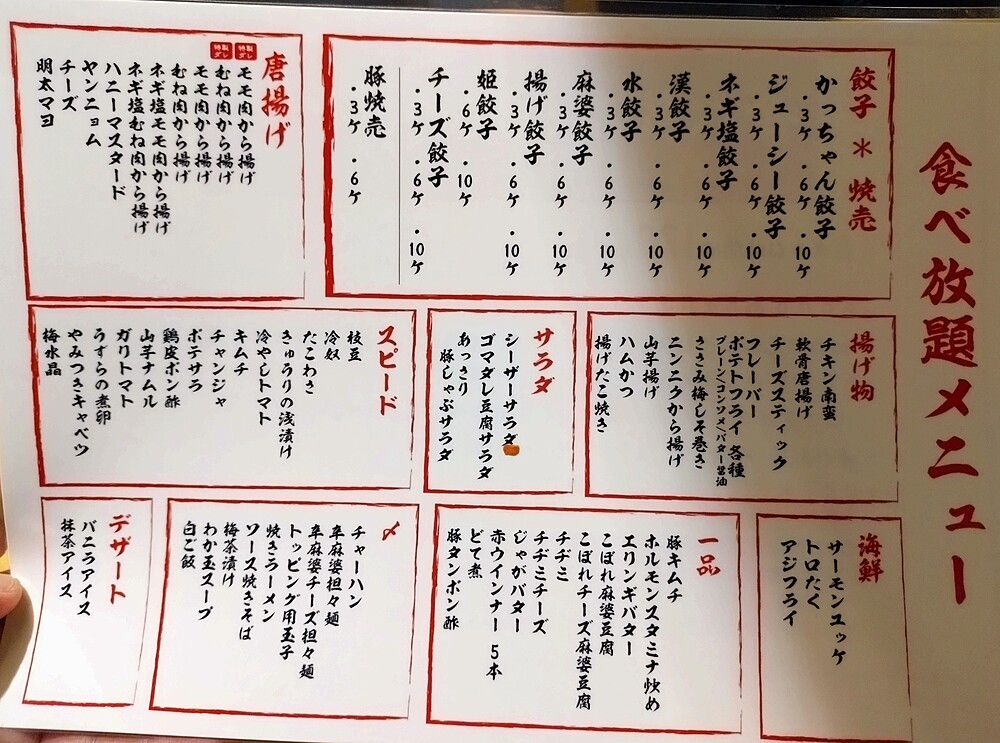 食べ放題メニュー
餃子 * 焼売
かっちゃん餃子
・3ケ ・6ケ ・10ケ
ジューシー餃子
・3ケ ・6ケ ・10ケ
ネギ塩餃子
・3ケ ・6ケ ・10ケ
漢餃子
・3ケ ・6ケ ・10ケ
水餃子
・3ケ ・6ケ ・10ケ
麻婆餃子
・3ケ ・6ケ ・10ケ
揚げ餃子
・3ケ ・6ケ ・10ケ
姫餃子
・6ケ ・10ケ
チーズ餃子
・3ケ ・6ケ ・10ケ
豚焼売
・3ケ ・6ケ
唐揚げ
特製ダレ モモ肉から揚げ
特製ダレ むね肉から揚げ
モモ肉から揚げ
むね肉から揚げ
ネギ塩モモ肉から揚げ
ネギ塩むね肉から揚げ
ハニーマスタード
ヤンニョム
チーズ
明太マヨ
揚げ物
チキン南蛮
軟骨唐揚げ
チーズスティック
フレーバー
ポテトフライ 各種
プレーン/コンソメ/バター醤油
ささみ梅しそ巻き
ニンニクから揚げ
山芋揚げ
ハムかつ
揚げたこ焼き
サラダ
シーザーサラダ
ゴマダレ豆腐サラダ
あっさり
豚しゃぶサラダ
スピード
枝豆
冷奴
たこわさ
きゅうりの浅漬け
冷やしトマト
キムチ
チャンジャ
ポテサラ
鶏皮ポン酢
山芋ナムル
ガリトマト
うずらの煮卵
やみつきキャベツ
梅水晶
海鮮
サーモンユッケ
トロたく
アジフライ
一品
豚キムチ
ホルモンスタミナ炒め
エリンギバター
こぼれ麻婆豆腐
こぼれチーズ麻婆豆腐
チヂミ
チヂミチーズ
じゃがバター
赤ウインナー 5本
どて煮
豚タンポン酢
〆
チャーハン
卒麻婆担々麺
卒麻婆チーズ担々麺
トッピング用玉子
焼きラーメン
ソース焼きそば
梅茶漬け
わか玉スープ
白ご飯
デザート
バニラアイス
抹茶アイス